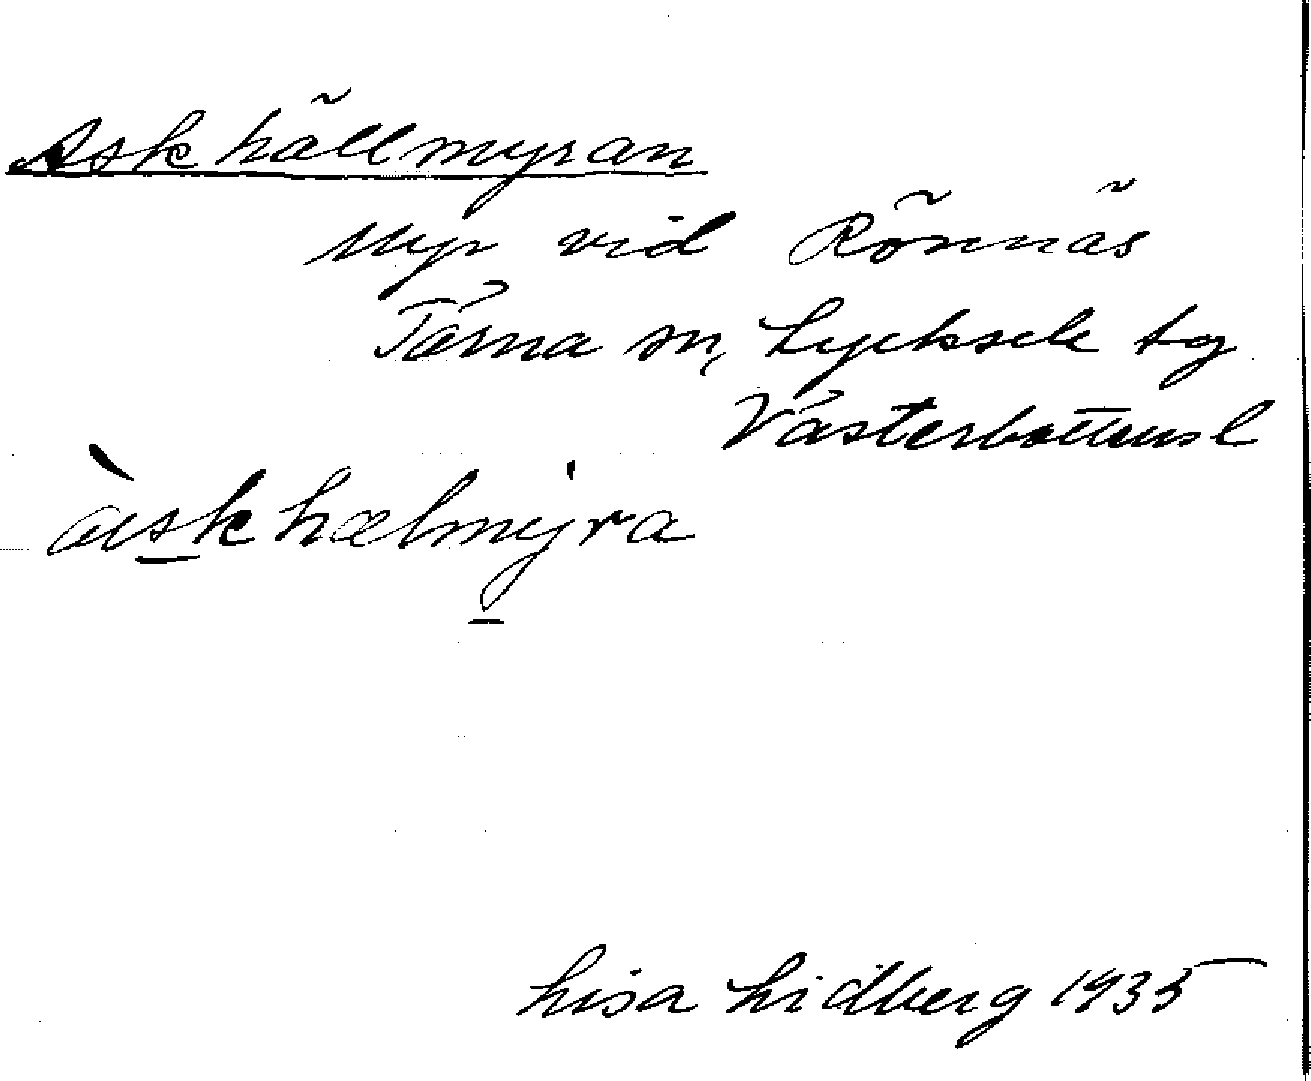 Askhällmyran
Myr vid Rönnäs
Tärna sn, Lycksele tg
Västerbottens l
àskhælmyra
Lisa Lidberg 1935